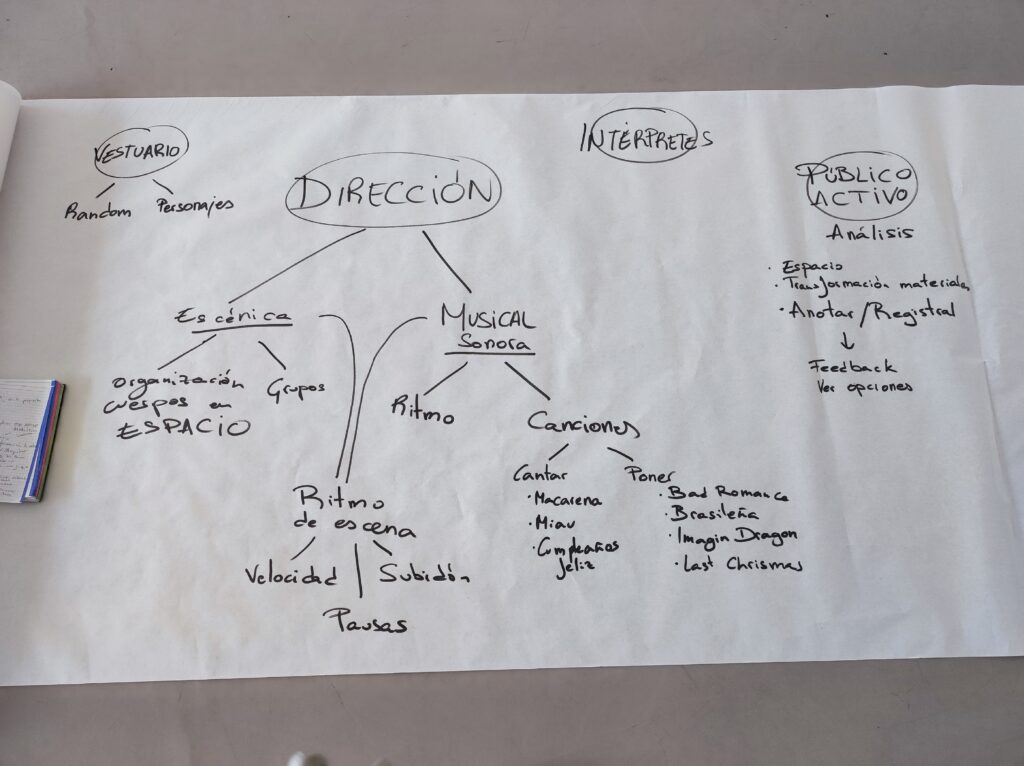 VESTUARIO
Random Personajes
DIRECCIÓN
Escénica
organización
cuerpos en
ESPACIO
Grupos
MUSICAL
Sonora
Ritmo
Canciones
Cantar
· Macarena
· Miau
· Cumpleaños
feliz
Poner
· Bad Romance
· Brasileña
· Imagin Dragon
· Last Chrismas
Ritmo
de escena
Velocidad
Pausas
Subidón
INTÉRPRETES
PÚBLICO
ACTIVO
Análisis
· Espacio
· Transformación materiales
· Anotar/Registral
Feedback
Ver opciones